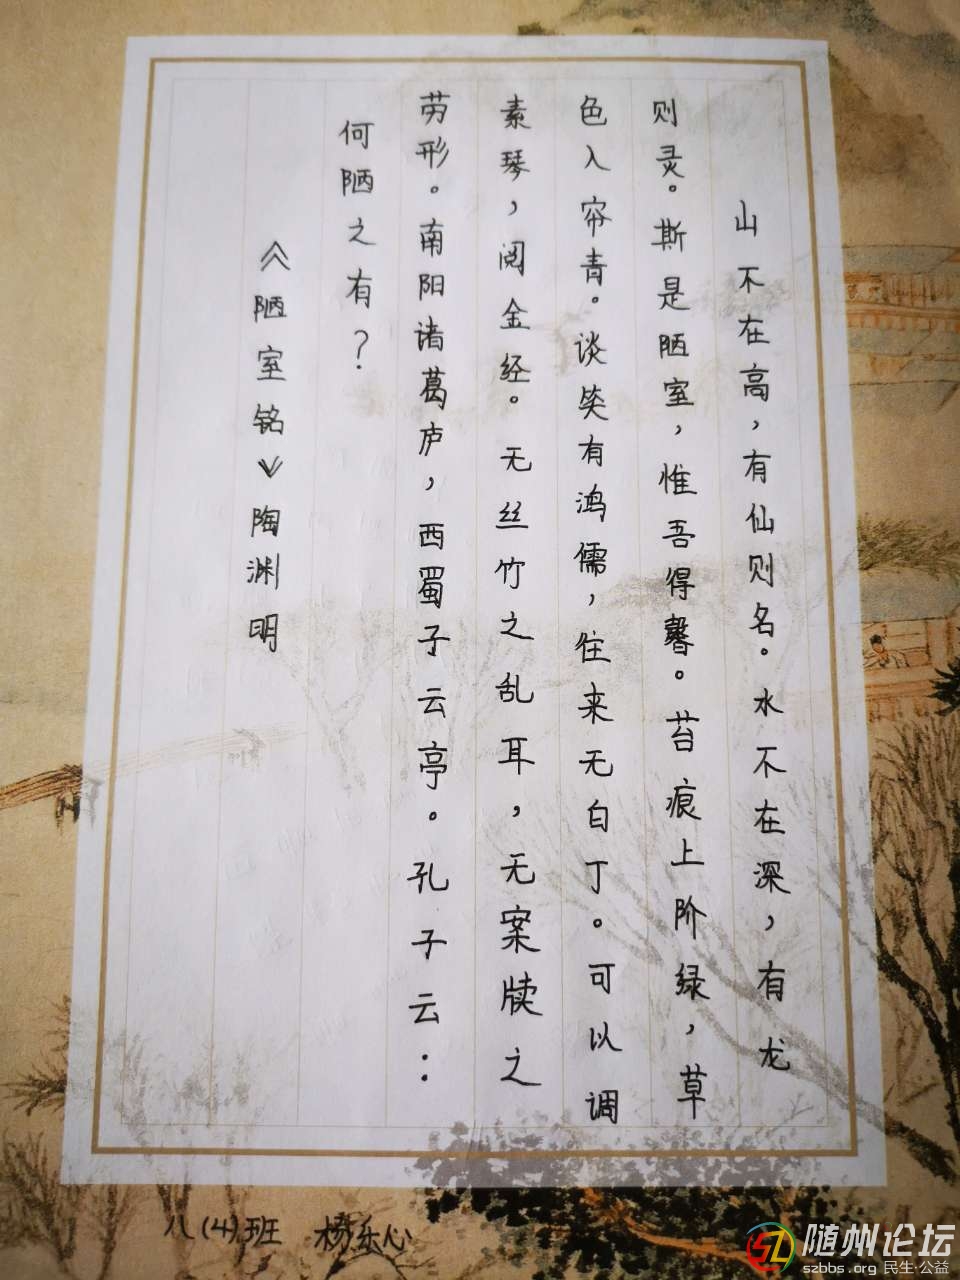 山不在高，有仙则名。水不在深，有龙
则灵。斯是陋室，惟吾得馨。苔痕上阶绿，草
色入帘青。谈笑有鸿儒，往来无白丁。可以调
素琴，阅金经。无丝竹之乱耳，无案牍之
劳形。南阳诸葛庐，西蜀子云亭。孔子云：
何陋之有？
《陋室铭》陶渊明
八(4)班 杨乐心
随州论坛
szbbs.org 民生·公益